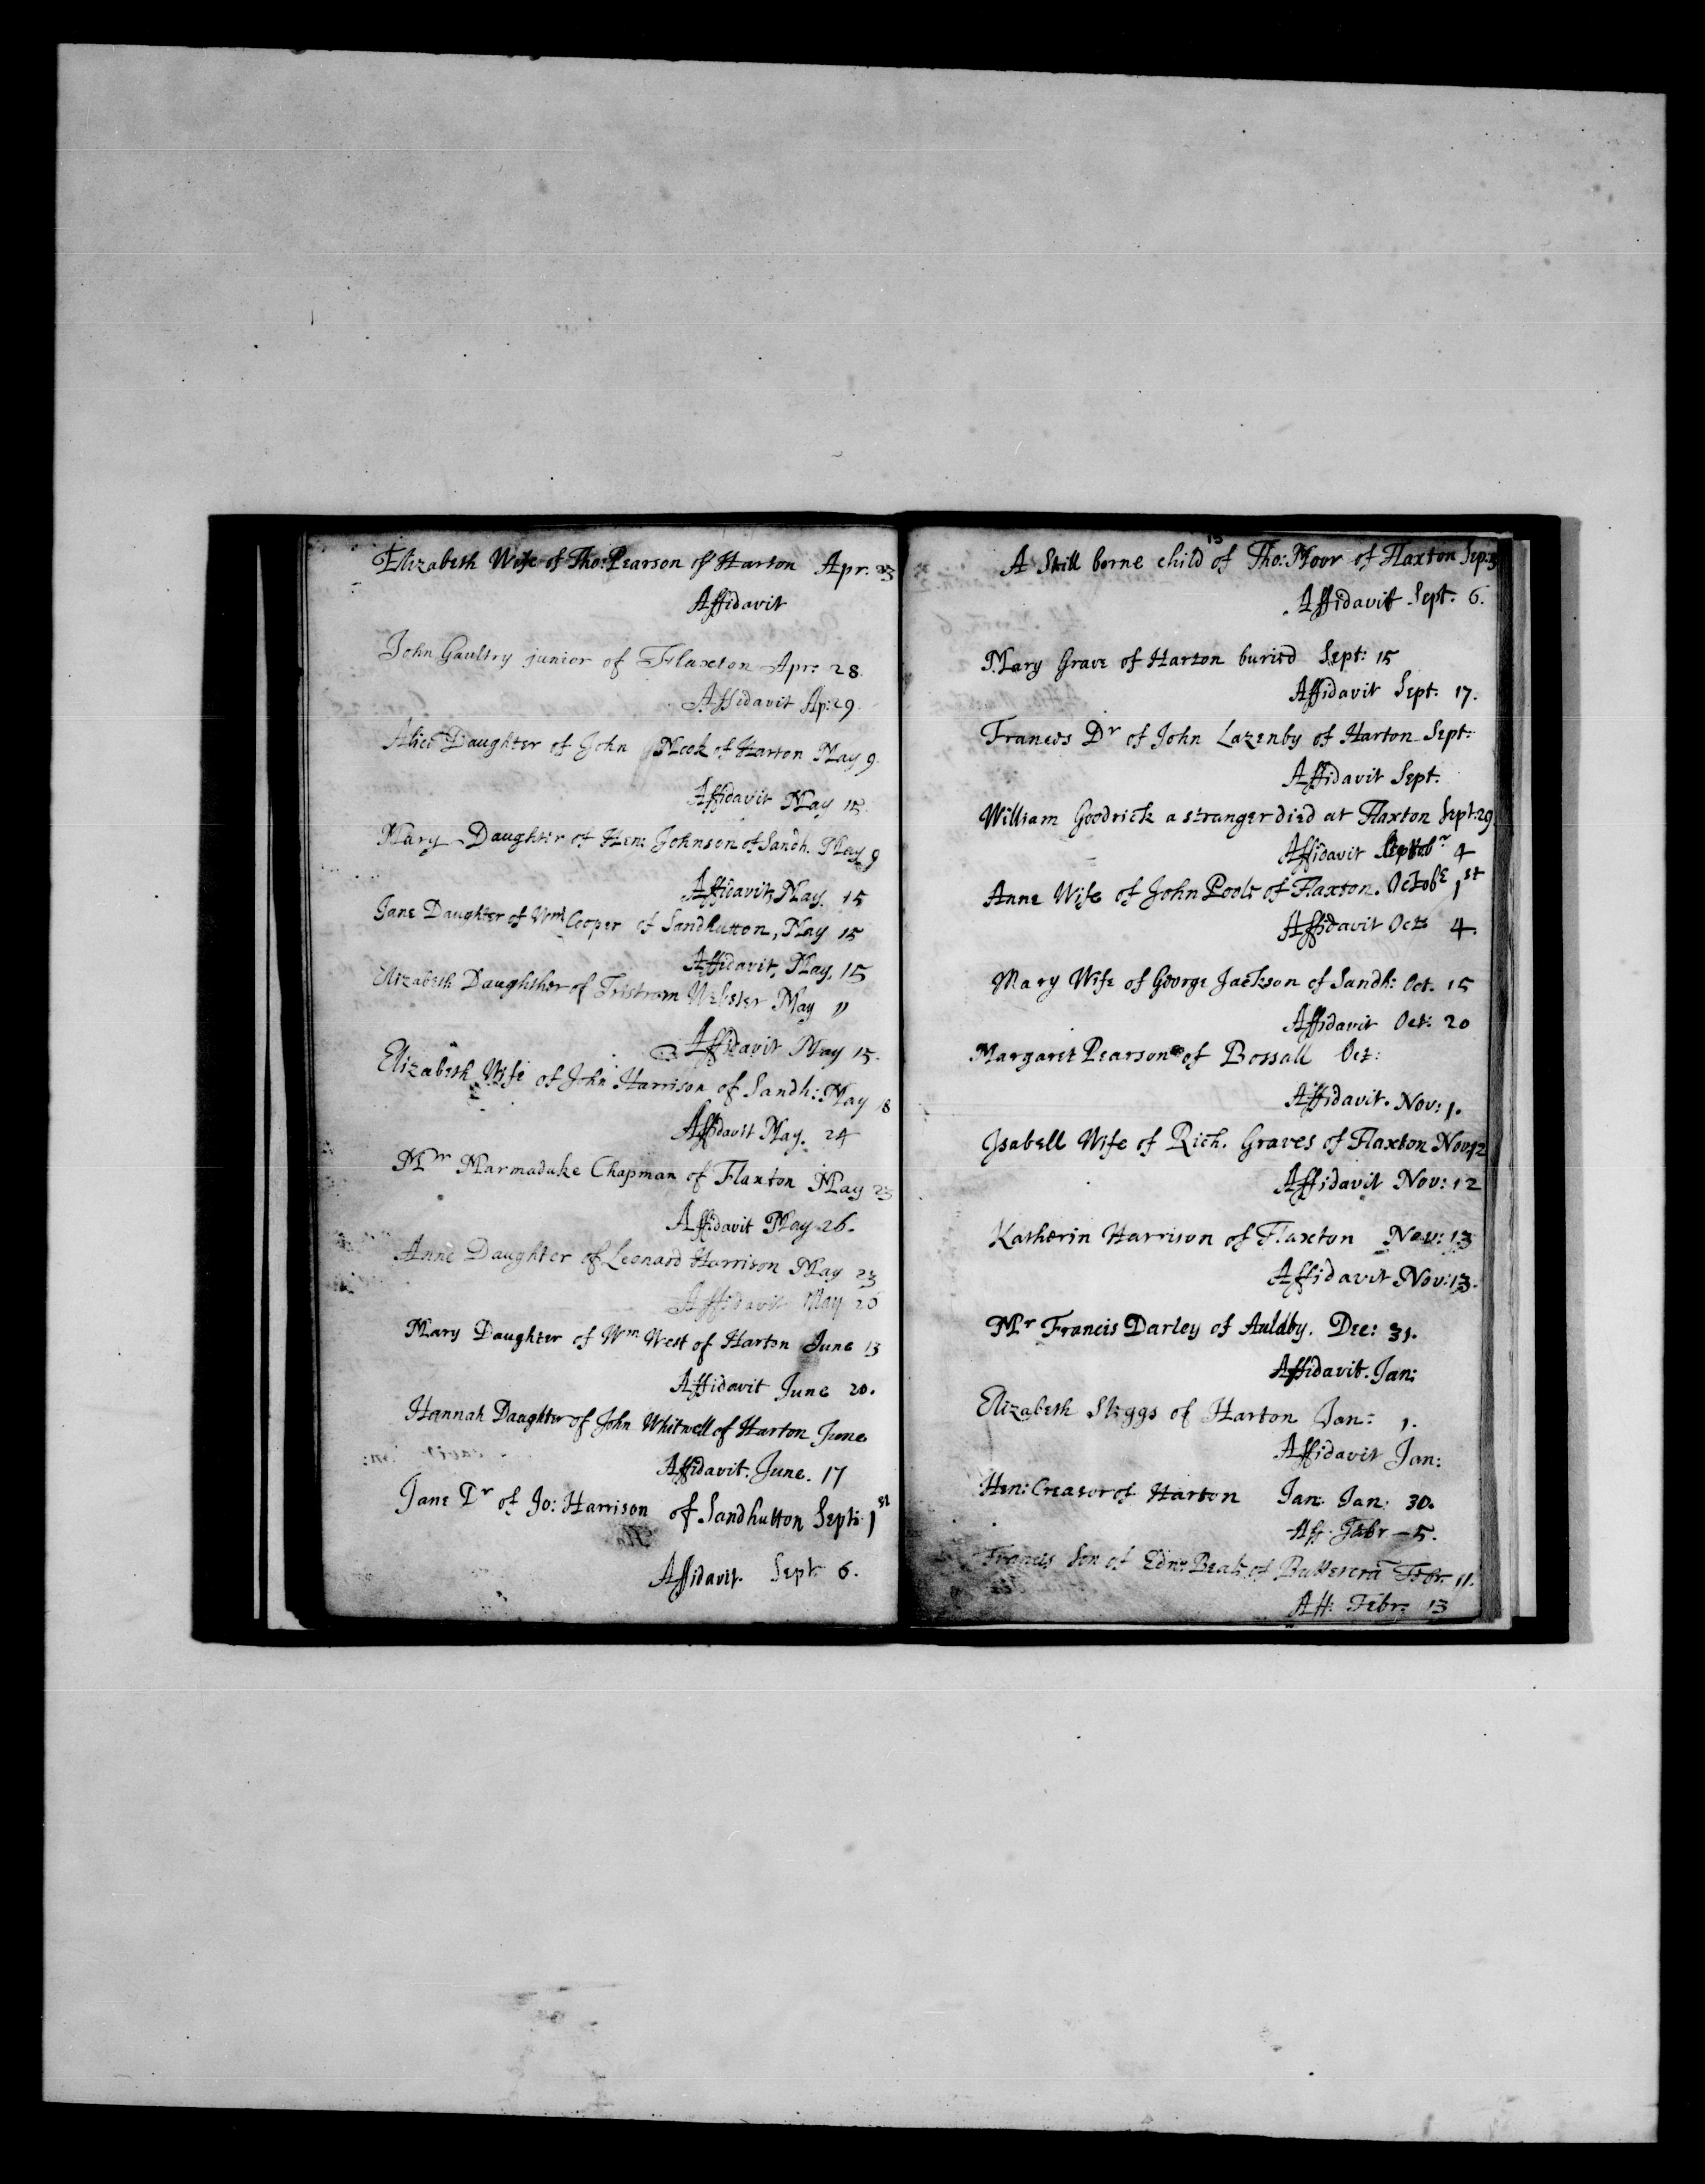 Elizabeth Wife of Tho: Pearson of Harton Apr. 23
Affidavit
John Gaultry junior of Flaxton Apr: 28.
Affidavit Ap: 29.
Alice Daughter of John Mook of Harton May 9.
Affidavit May 15.
Mary Daughter of Hen: Johnson of Sandh. May 9
Affidavit, May. 15
Jane Daughter of Wm Cooper of Sandhutton, May 15
Affidavit, May, 15
Elizabeth Daughther of Tristram Webster May 11
Affidavit May 15.
Elizabeth Wife of John Harrison of Sandh: May 18
Affidavit May. 24
Mr Marmaduke Chapman of Flaxton May 23
Affidavit May 26.
Anne Daughter of Leonard Harrison May 23
Affidavit May 26
Mary Daughter of Wm West of Harton June 13
Affidavit June 20.
Hannah Daughter of John Whitwell of Harton June
Affidavit. June. 17
Jane Dr of Jo: Harrison of Sandhutton Sept: 1st
Affidavit. Sept 6.
15
A Still borne child of Tho: Moor of Flaxton Sep: 5
Affidavit Sept. 6.
Mary Grave of Harton buried Sept: 15
Affidavit Sept. 17.
Frances Dr of John Lazenby of Harton Sept:
Affidavit Sept.
William Goodrick a stranger died at Flaxton Sept: 29
Affidavit 4
Anne Wife of John Poole of Flaxton. Octobr 1st
Affidavit Oct: 4.
Mary Wife of George Jackson of Sandh: Oct. 15
Affidavit Oct: 20
Margaret Pearson of Bossall Oct:
Affidavit. Nov: 1.
Isabell Wife of Rich. Graves of Flaxton Nov 12
Affidavit Nov: 12
Katherin Harrison of Flaxton Nov: 13
Affidavit Nov: 13.
Mr Francis Darley of Auldby. Dec: 31.
Affidavit. Jan:
Elizabeth Skggs of Harton Jan: 1.
Affidavit Jan:
Hen: Creaser of Harton Jan: Jan: 30.
Aff. Febr - 5.
Francis Son of Edm: Beal of Buttercra Febr. 11.
Aff: Febr: 13